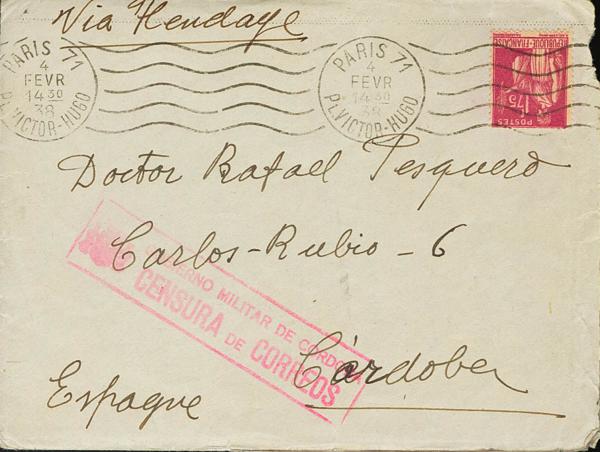 Via Hendaye
PARIS 71
4
FEVR
14 30
38
PL.VICTOR-HUGO
PARIS 71
4
FEVR
14 30
38
PL.VICTOR-HUGO
REPUBLIQUE-FRANÇAISE
1F75
POSTES
Doctor Rafael Pesquero
Carlos-Rubio - 6
GOBIERNO MILITAR DE CORDOBA
CENSURA DE CORREOS
Córdoba
Espagne